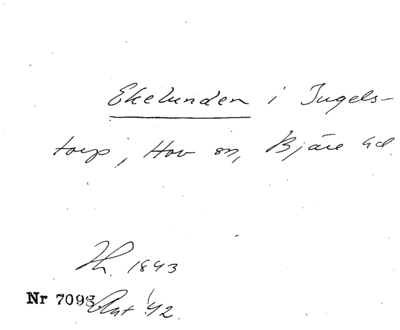 Ekelunden i Ingels-
torp, Hov sn, Bjäre hd.
Th. 1843
Nr 7093 Ant '42.